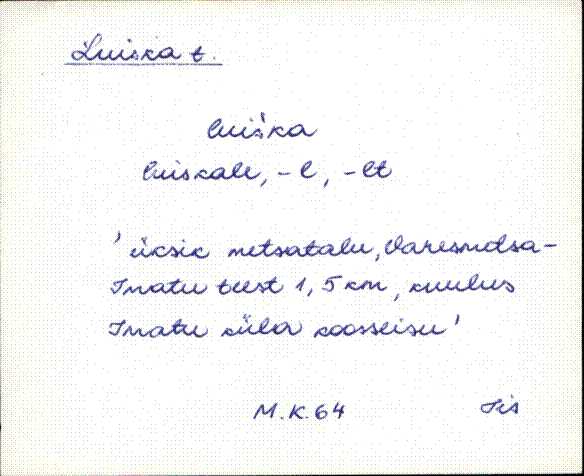 Luiska t.
luiska
luiskale, -l, -lt
'üksik metsatalu, Varesmetsa-
Imatu teest 1,5 km, kuulus
Imatu küla koosseisu'
M.K. 64 Iis